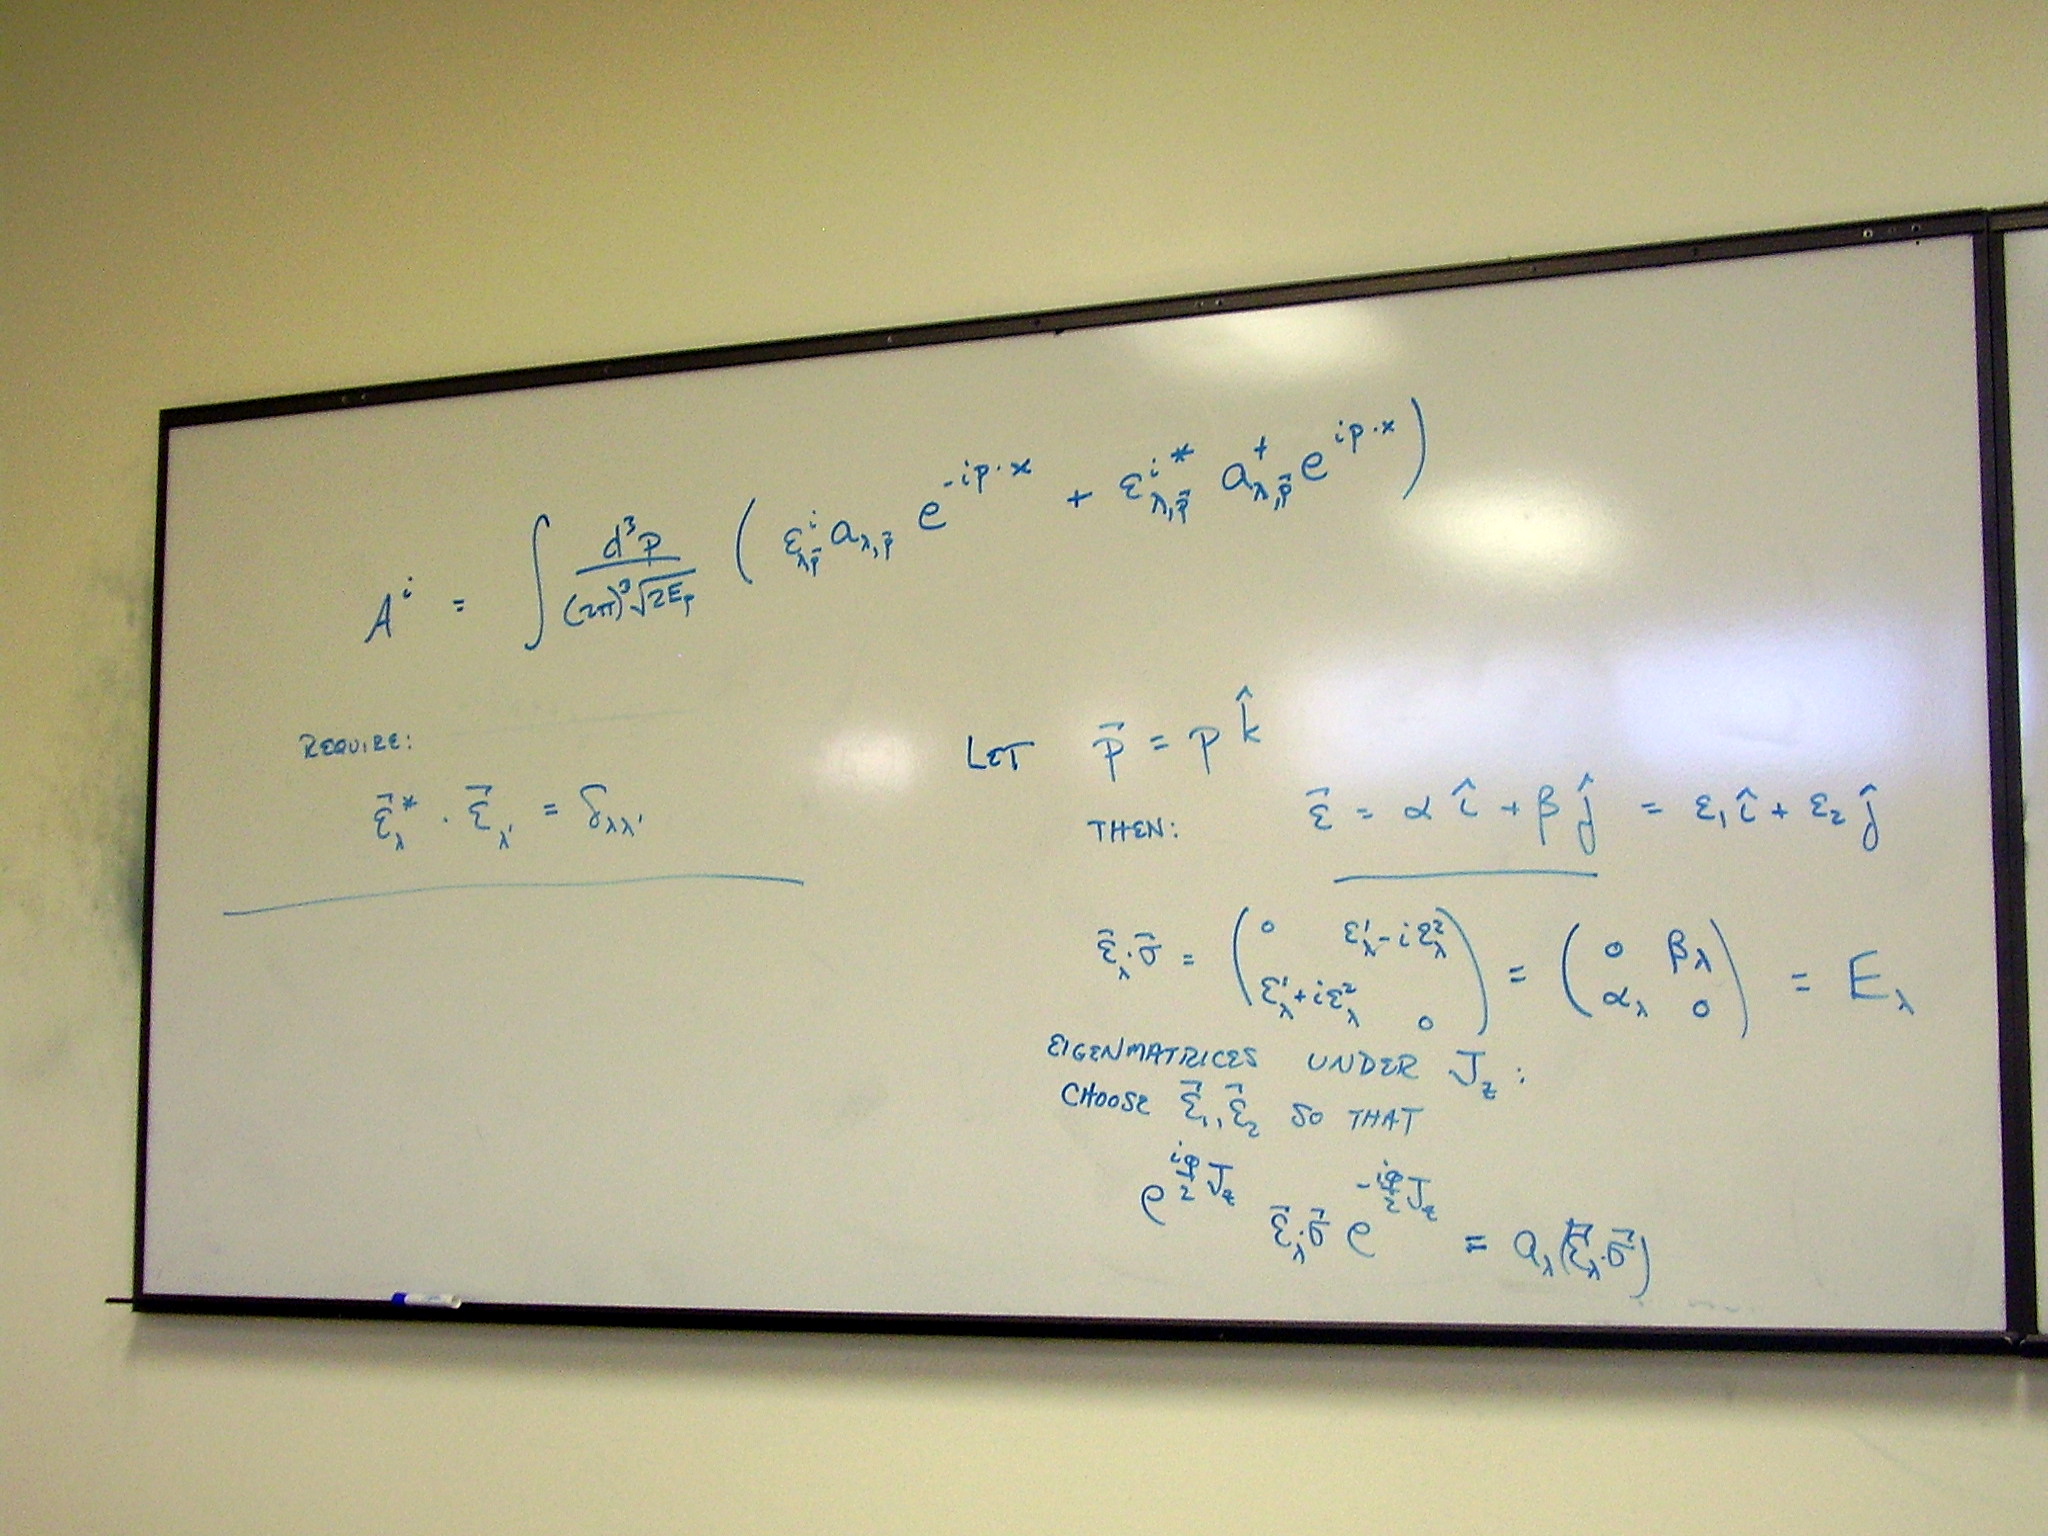 Aⁱ = ∫ d³p / (2π)³√2E_p ( εⁱ_λp⃗ a_λ,p⃗ e^(-ip·x) + εⁱ*_λ,p⃗ a†_λ,p⃗ e^(ip·x) )
REQUIRE:
ε⃗*_λ · ε⃗_λ' = δ_λλ'
LET p⃗ = p k̂
THEN: ε⃗ = α î + β ĵ = ε₁ î + ε₂ ĵ
ε⃗_λ·σ⃗ = ( 0 ε¹_λ - iε²_λ ; ε¹_λ + iε²_λ 0 ) = ( 0 β_λ ; α_λ 0 ) = E_λ
EIGENMATRICES UNDER J_z :
CHOOSE ε⃗₁, ε⃗₂ SO THAT
e^(iφ/2 J_z) ε⃗_λ·σ⃗ e^(-iφ/2 J_z) = a_λ(ε⃗_λ·σ⃗)